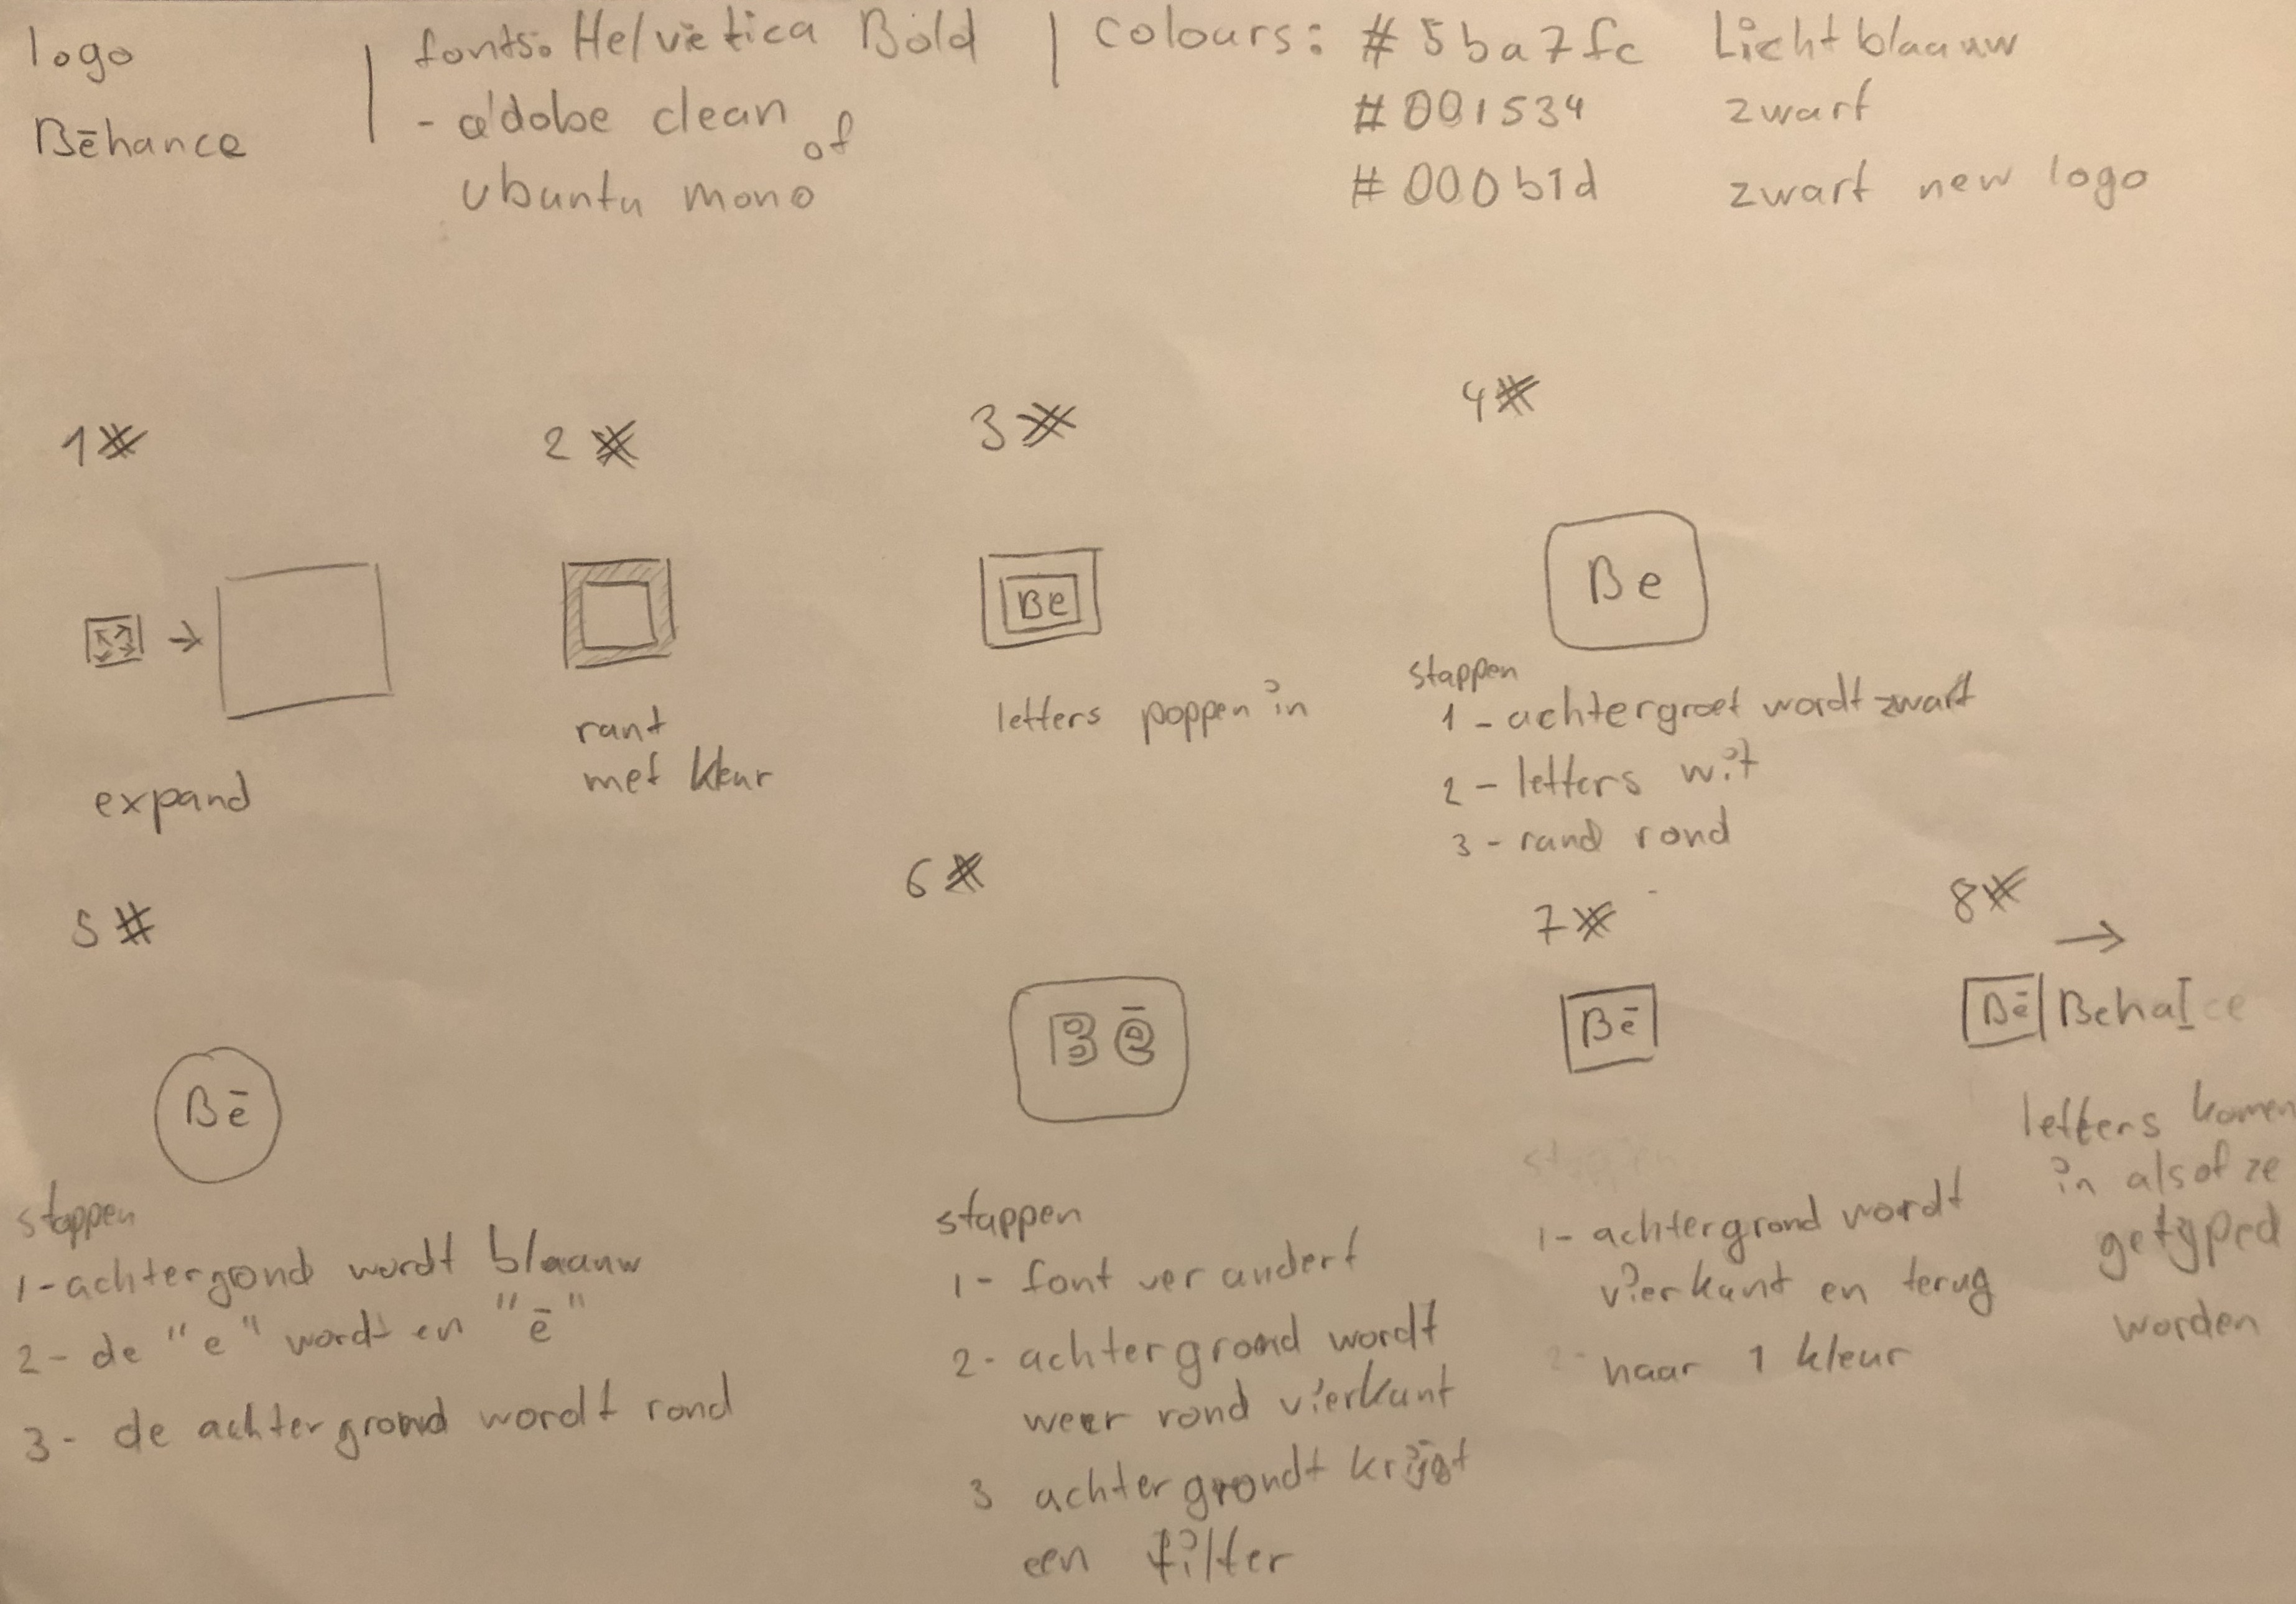 logo
Bēhance
fonts: Helvetica Bold
- adobe clean of
ubuntu mono
colours: #5ba7fc Lichtblaauw
#001534 zwart
#000b1d zwart new logo
1#
expand
2#
rant
met kleur
3#
Be
letters poppen in
4#
Be
stappen
1 - achtergroet wordt zwart
2 - letters wit
3 - rand rond
5#
Bē
stappen
1 - achtergrond wordt blaauw
2 - de "e" wordt en "ē"
3 - de achtergrond wordt rond
6#
Bē
stappen
1 - font verandert
2 - achtergrond wordt
weer rond vierkant
3 achtergrondt krijgt
een filter
7#
Bē
stappen
1 - achtergrond wordt
vierkant en terug
2 - naar 1 kleur
8#
→
Bē Behance
letters komen
in alsof ze
getyped
worden